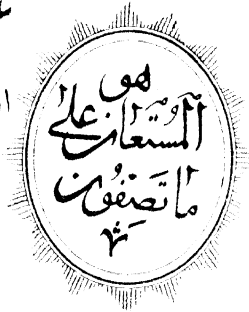 هو
المستعان على
ما تصفون